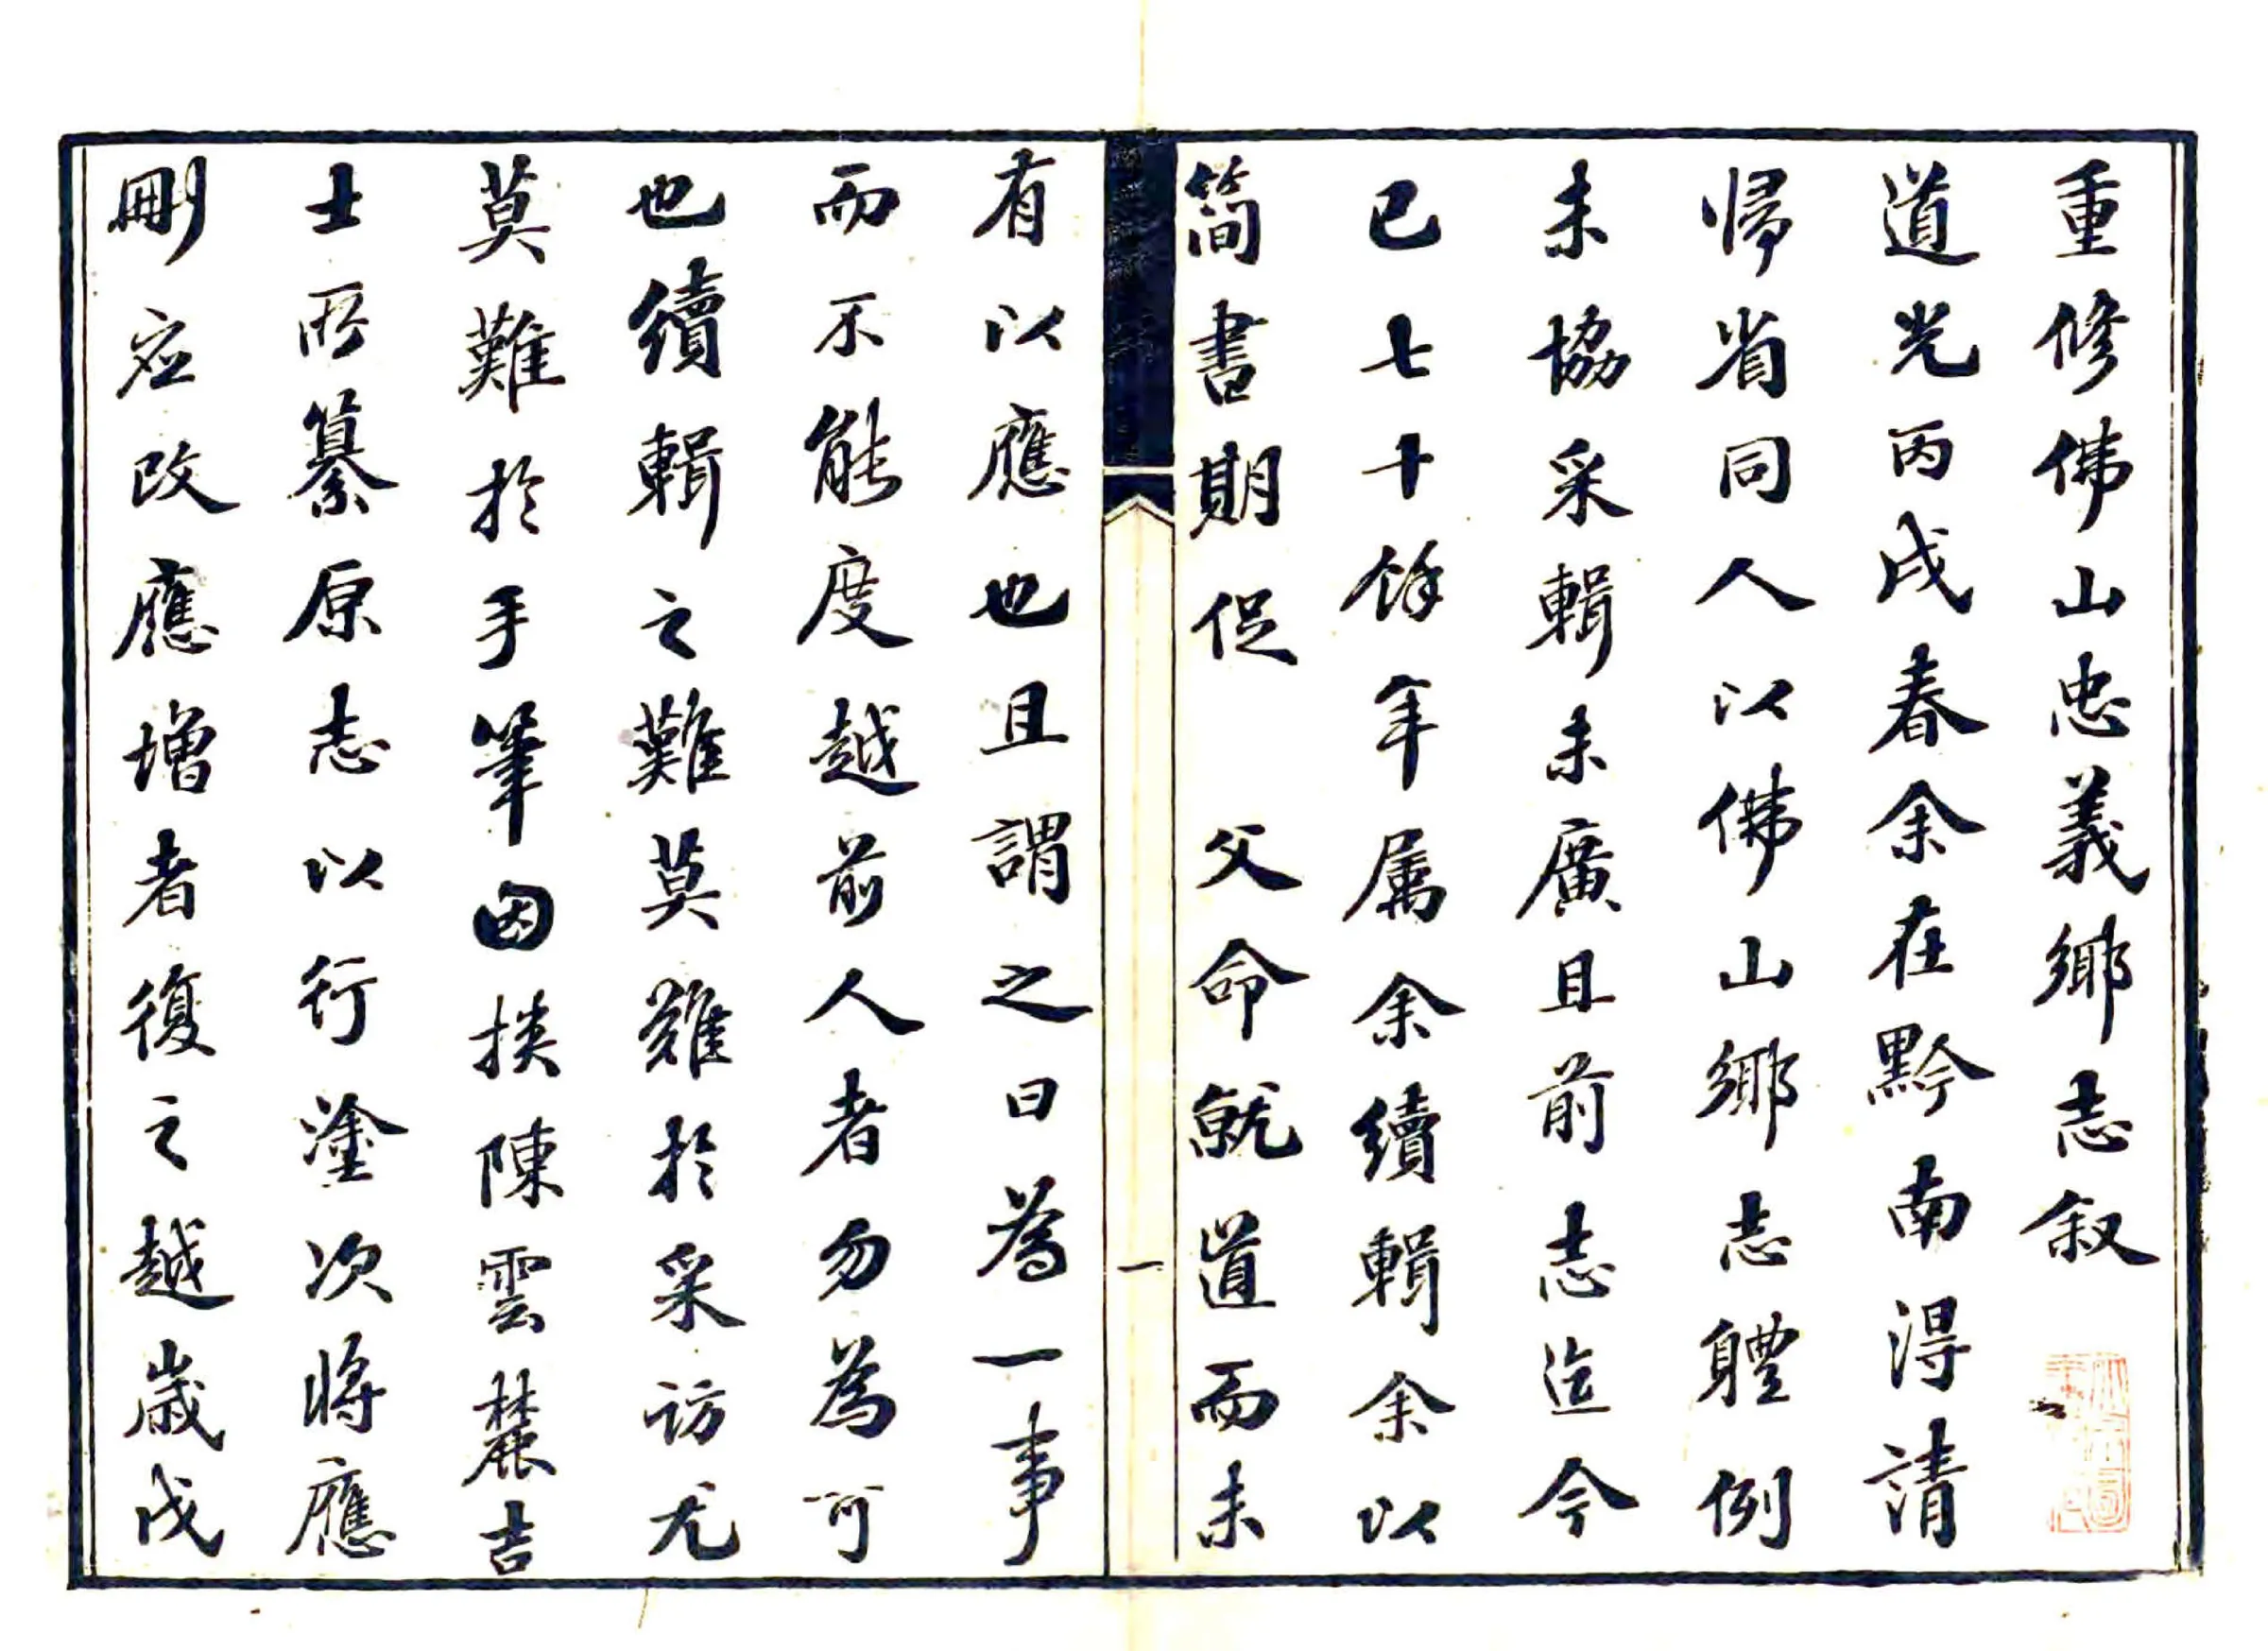 重修佛山忠義鄉志叙
道光丙戌春余在黔南淂請
歸省同人以佛山鄉志軆例
未協采輯未廣且前志迄今
已七十餘年屬余續輯余以
简書期促　父命就道而未
一
有以應也且謂之曰為一事
而不能度越前人者勿為可
也續輯之難莫難於采訪尤
莫難於手筆因挨陳雲麓吉
士所纂原志以行塗次將應
刪应改應增者復之越歲戊